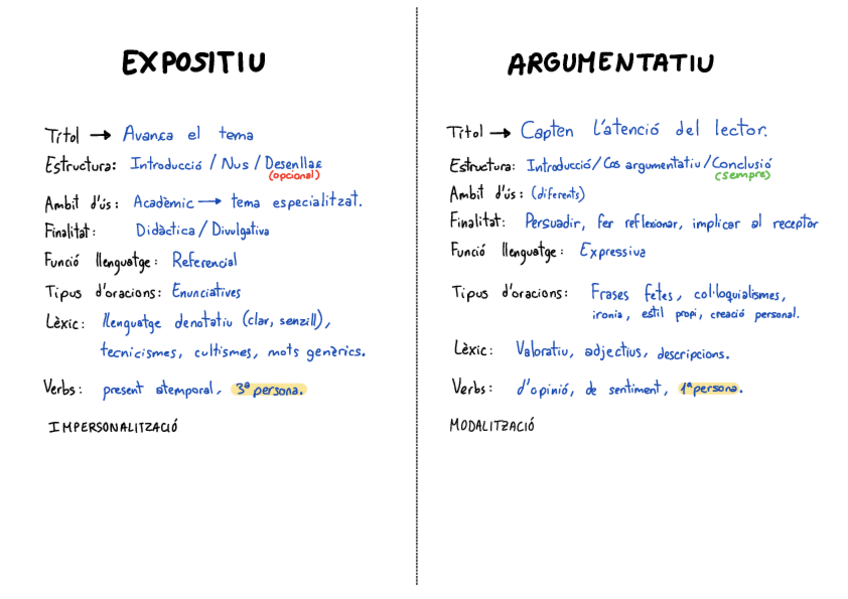 EXPOSITIU
Títol → Avança el tema
Estructura: Introducció / Nus / Desenllaç
(opcional)
Àmbit d'ús: Acadèmic → tema especialitzat.
Finalitat: Didàctica / Divulgativa
Funció llenguatge: Referencial
Tipus d'oracions: Enunciatives
Lèxic: llenguatge denotatiu (clar, senzill),
tecnicismes, cultismes, mots genèrics.
Verbs: present atemporal, 3ª persona.
IMPERSONALITZACIÓ
ARGUMENTATIU
Títol → Capten l'atenció del lector.
Estructura: Introducció / Cos argumentatiu / Conclusió
(sempre)
Àmbit d'ús: (diferents)
Finalitat: Persuadir, fer reflexionar, implicar al receptor
Funció llenguatge: Expressiva
Tipus d'oracions: Frases fetes, col·loquialismes,
ironia, estil propi, creació personal.
Lèxic: Valoratiu, adjectius, descripcions.
Verbs: d'opinió, de sentiment, 1ª persona.
MODALITZACIÓ